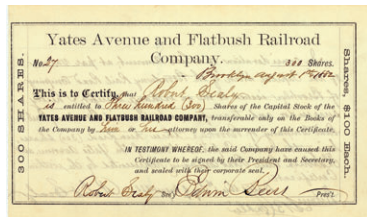 Yates Avenue and Flatbush Railroad
Company.
No. 27
300 Shares.
Brooklyn August 1st 1882
This is to Certify, that Robert Sealy
is entitled to Three hundred (300) Shares of the Capital Stock of the
YATES AVENUE AND FLATBUSH RAILROAD COMPANY, transferable only on the Books of
the Company by him or his attorney upon the surrender of this Certificate.
IN TESTIMONY WHEREOF, the said Company have caused this
Certificate to be signed by their President and Secretary,
and sealed with their corporate seal.
Robert Sealy Sec'y Edwin Pres't.
300 SHARES.
Shares, $100 Each.